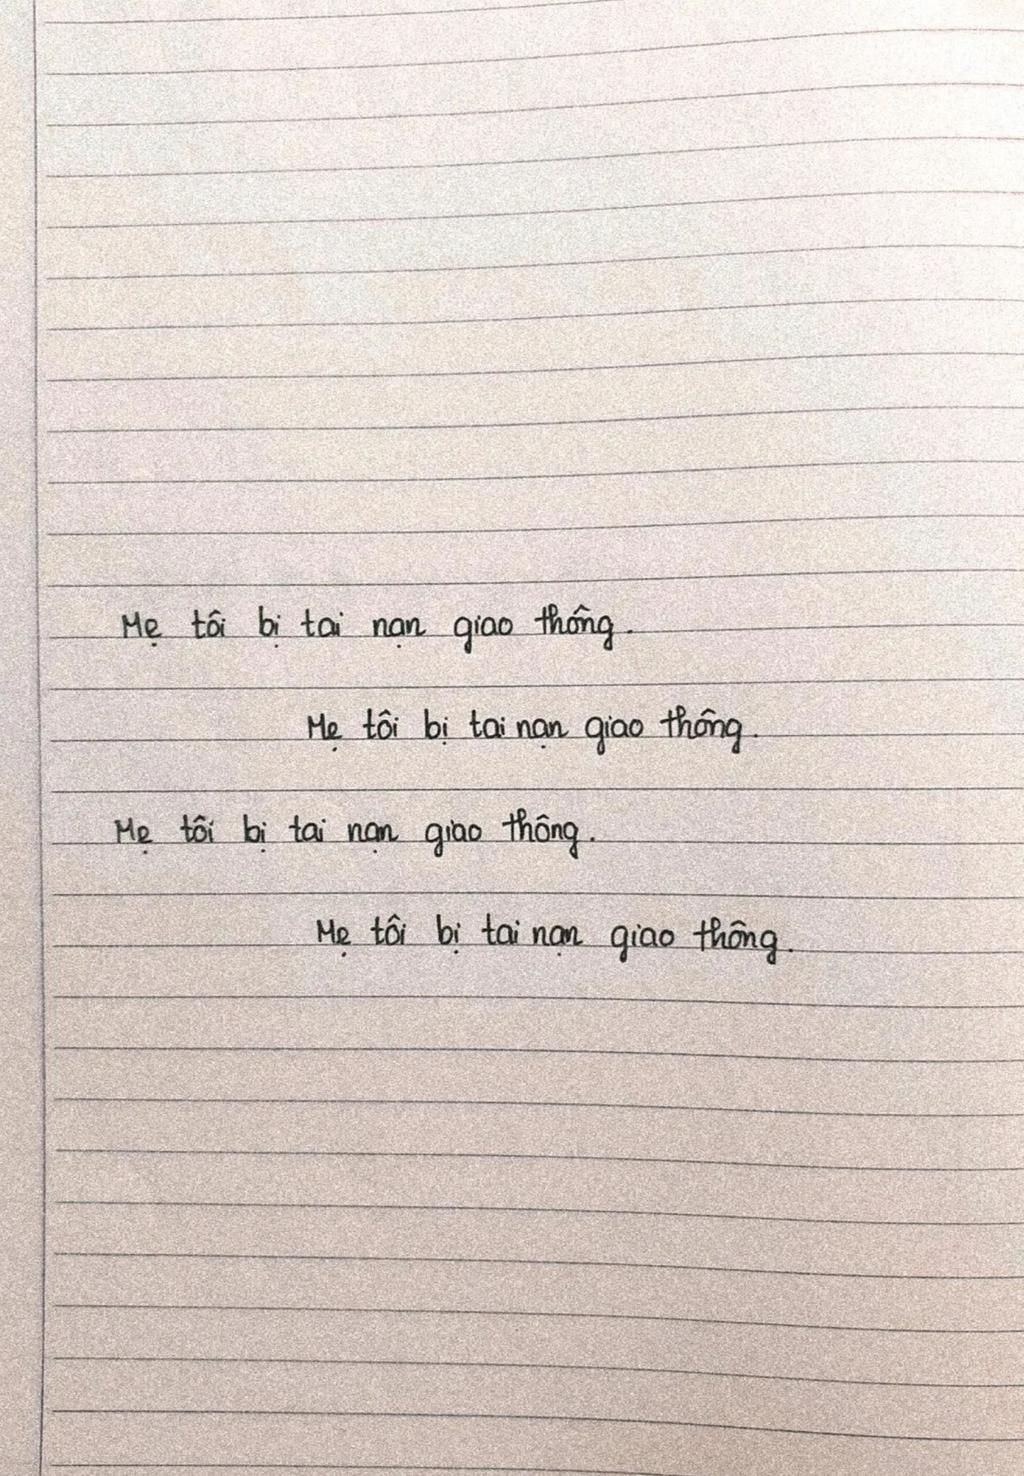 Mẹ tôi bị tai nạn giao thông.
Mẹ tôi bị tai nạn giao thông.
Mẹ tôi bị tai nạn giao thông.
Mẹ tôi bị tai nạn giao thông.